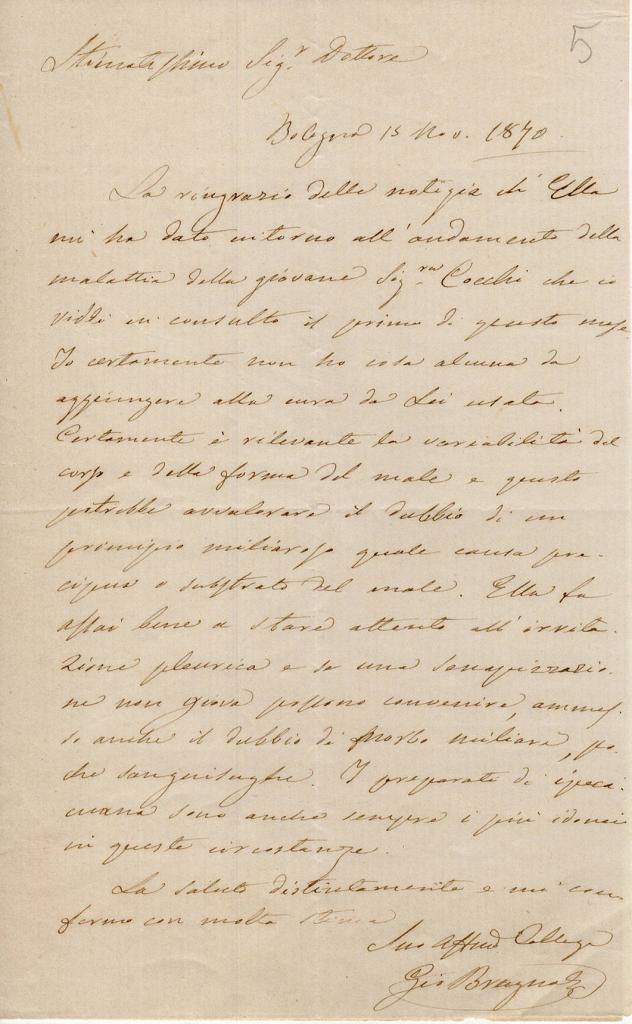 5
Stimatissimo Sigr Dottore
Bologna 15 Nov. 1870.
La ringrazio delle notizie ch' Ella
mi ha dato intorno all' andamento della
malattia della giovane Sigra Cocchi che io
viddi in consulto il primo di questo mese
Io certamente non ho cosa alcuna da
aggiungere alla cura da Lei usata.
Certamente è rilevante la variabilità del
corso e della forma del male e questo
potrebbe avvalorare il dubbio di un
principio miliaroso quale causa pre-
cipua o substrato del male. Ella fa
assai bene a stare attento all' irrita-
zione pleurica e se una
ne non giova possono convenire, ammes-
so anche il dubbio di morbo miliare, po-
che sanguisughe. I preparati di ipeca-
cuana sono anche sempre i più idonei
in queste circostanze.
La saluto distintamente e mi con-
fermo con molta stima
Suo Affmo Collega
Gio